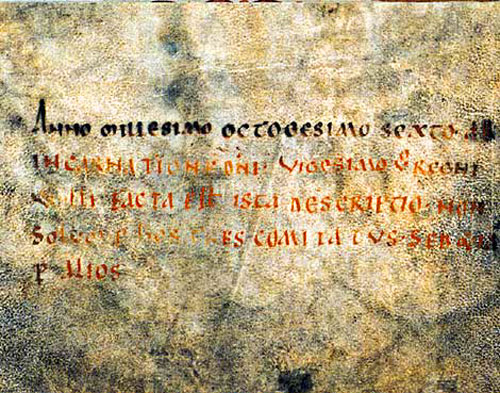 Anno millesimo octogesimo sexto ab
incarnatione dni vigesimo v̊ regni
Willi facta est ista descriptio. non
solū p hos tres comitatus. sed etiā
p alios